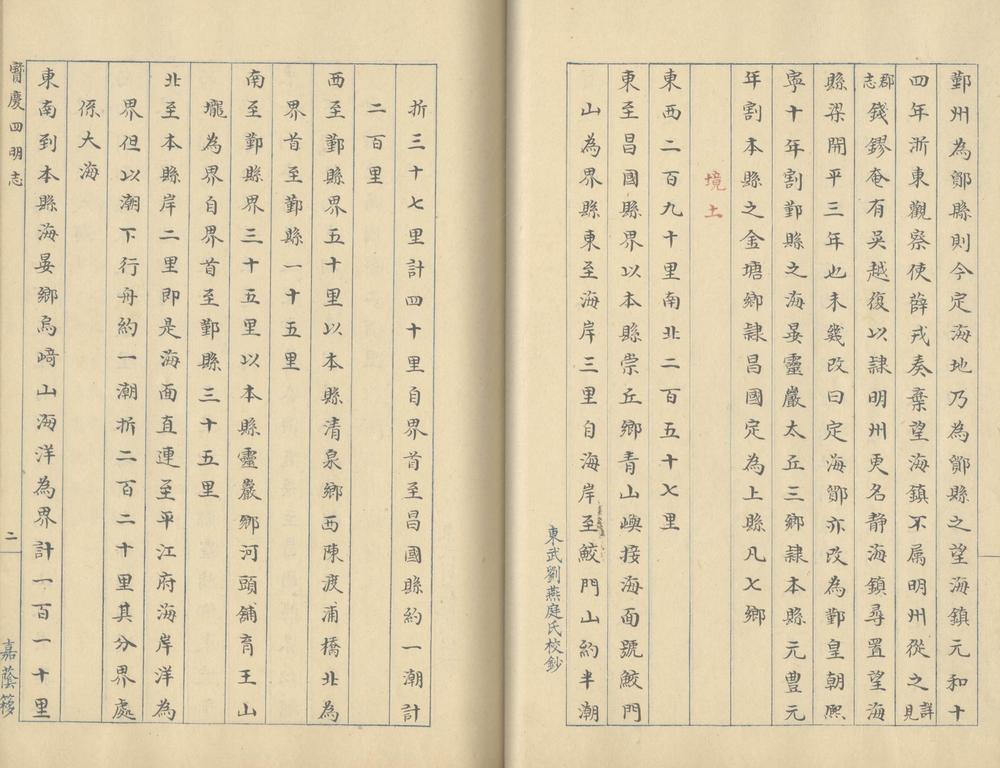 鄞州為鄮縣則今定海地乃為鄮縣之望海鎮元和十
四年浙東觀察使薛戎奏棄望海鎮不属明州從之詳見
郡志錢鏐奄有吳越復以隷明州更名静海鎮尋置望海
縣梁開平三年也未幾改曰定海鄮亦改為鄞皇朝熙
寧十年割鄞縣之海晏靈巖太丘三鄉隷本縣元豊元
年割本縣之金塘鄉隷昌國定為上縣凡七鄉
境土
東西二百九十里南北二百五十七里
東至昌國縣界以本縣崇丘鄉青山嶼接海面號鮫門
山為界縣東至海岸三里自海岸至鮫門山約半潮
東武劉燕庭氏校鈔
折三十七里計四十里自界首至昌國縣約一潮計
二百里
西至鄞縣界五十里以本縣清泉鄉西陳渡浦橋北為
界首至鄞縣一十五里
南至鄞縣界三十五里以本縣靈巖鄉河頭舖育王山
壠為界自界首至鄞縣三十五里
北至本縣岸二里即是海面直連至平江府海岸洋為
界但以潮下行舟約一潮折二百二十里其分界處
係大海
東南到本縣海晏鄉烏﨑山海洋為界計一百一十里
寳慶四明志
二
嘉蔭簃